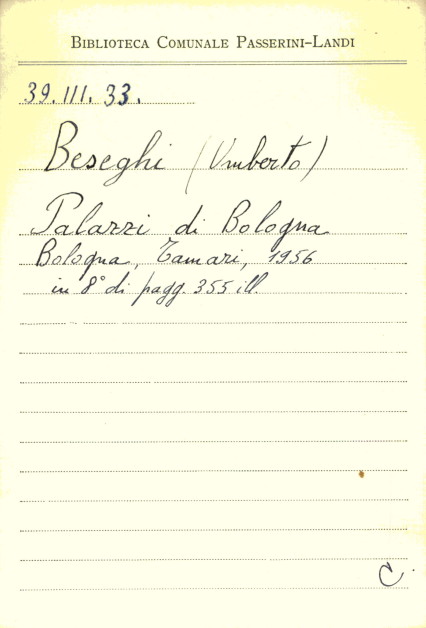 BIBLIOTECA COMUNALE PASSERINI-LANDI
39. III. 33.
Beseghi (Umberto)
Palazzi di Bologna
Bologna, Tamari, 1956
in 8° di pagg. 355 ill.
C